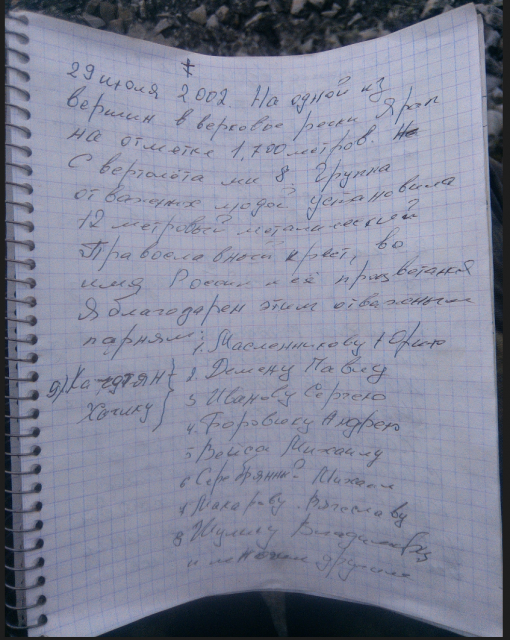 29 июля 2002. На одной из
вершин в верховое реки Яран
на отметке 1,700 метров.
С вертолёта ми 8 группа
отважных людей установила
12 метровый металический
Православный крест, во
имя России и её процветания
Я благодарен этим отважным
парням:
1. Масленникову Юрию
2. Демену Павид
3 Иванову Сергею
4. Боровику Андрею
5 Вейса Михаилу
6 Михаил
7 Макарову Вячеславу
8 Шулику
9) Хачику
и многим другим